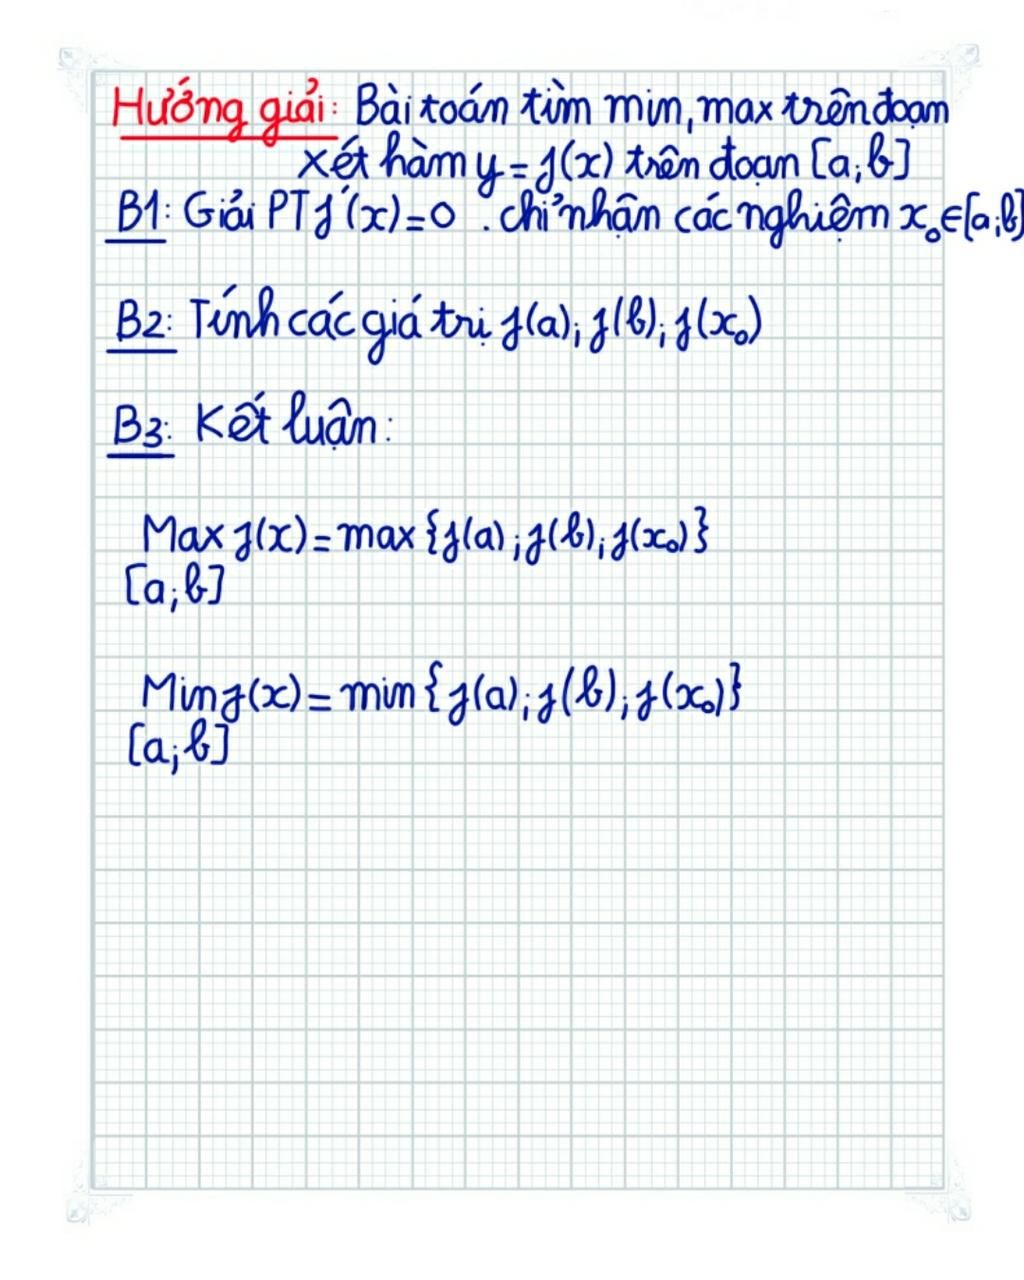 Hướng giải: Bài toán tìm min, max trên đoạn
xét hàm y = f(x) trên đoạn [a;b]
B1: Giải PT f'(x)=0 . chỉ nhận các nghiệm x₀∈[a;b]
B2: Tính các giá trị f(a); f(b); f(x₀)
B3: Kết luận:
Max f(x) = max {f(a); f(b); f(x₀)}
[a;b]
Min f(x) = min {f(a); f(b); f(x₀)}
[a;b]